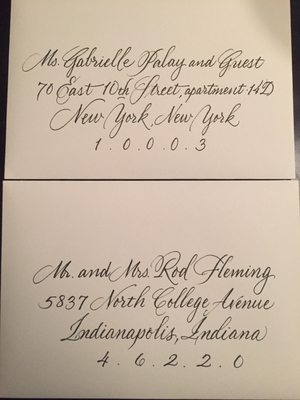 Ms. Gabrielle Palay and Guest
70 East 10th Street, apartment 14D
New York, New York
1.0.0.0.3
Mr. and Mrs. Rod Fleming
5837 North College Avenue
Indianapolis, Indiana
4.6.2.2.0